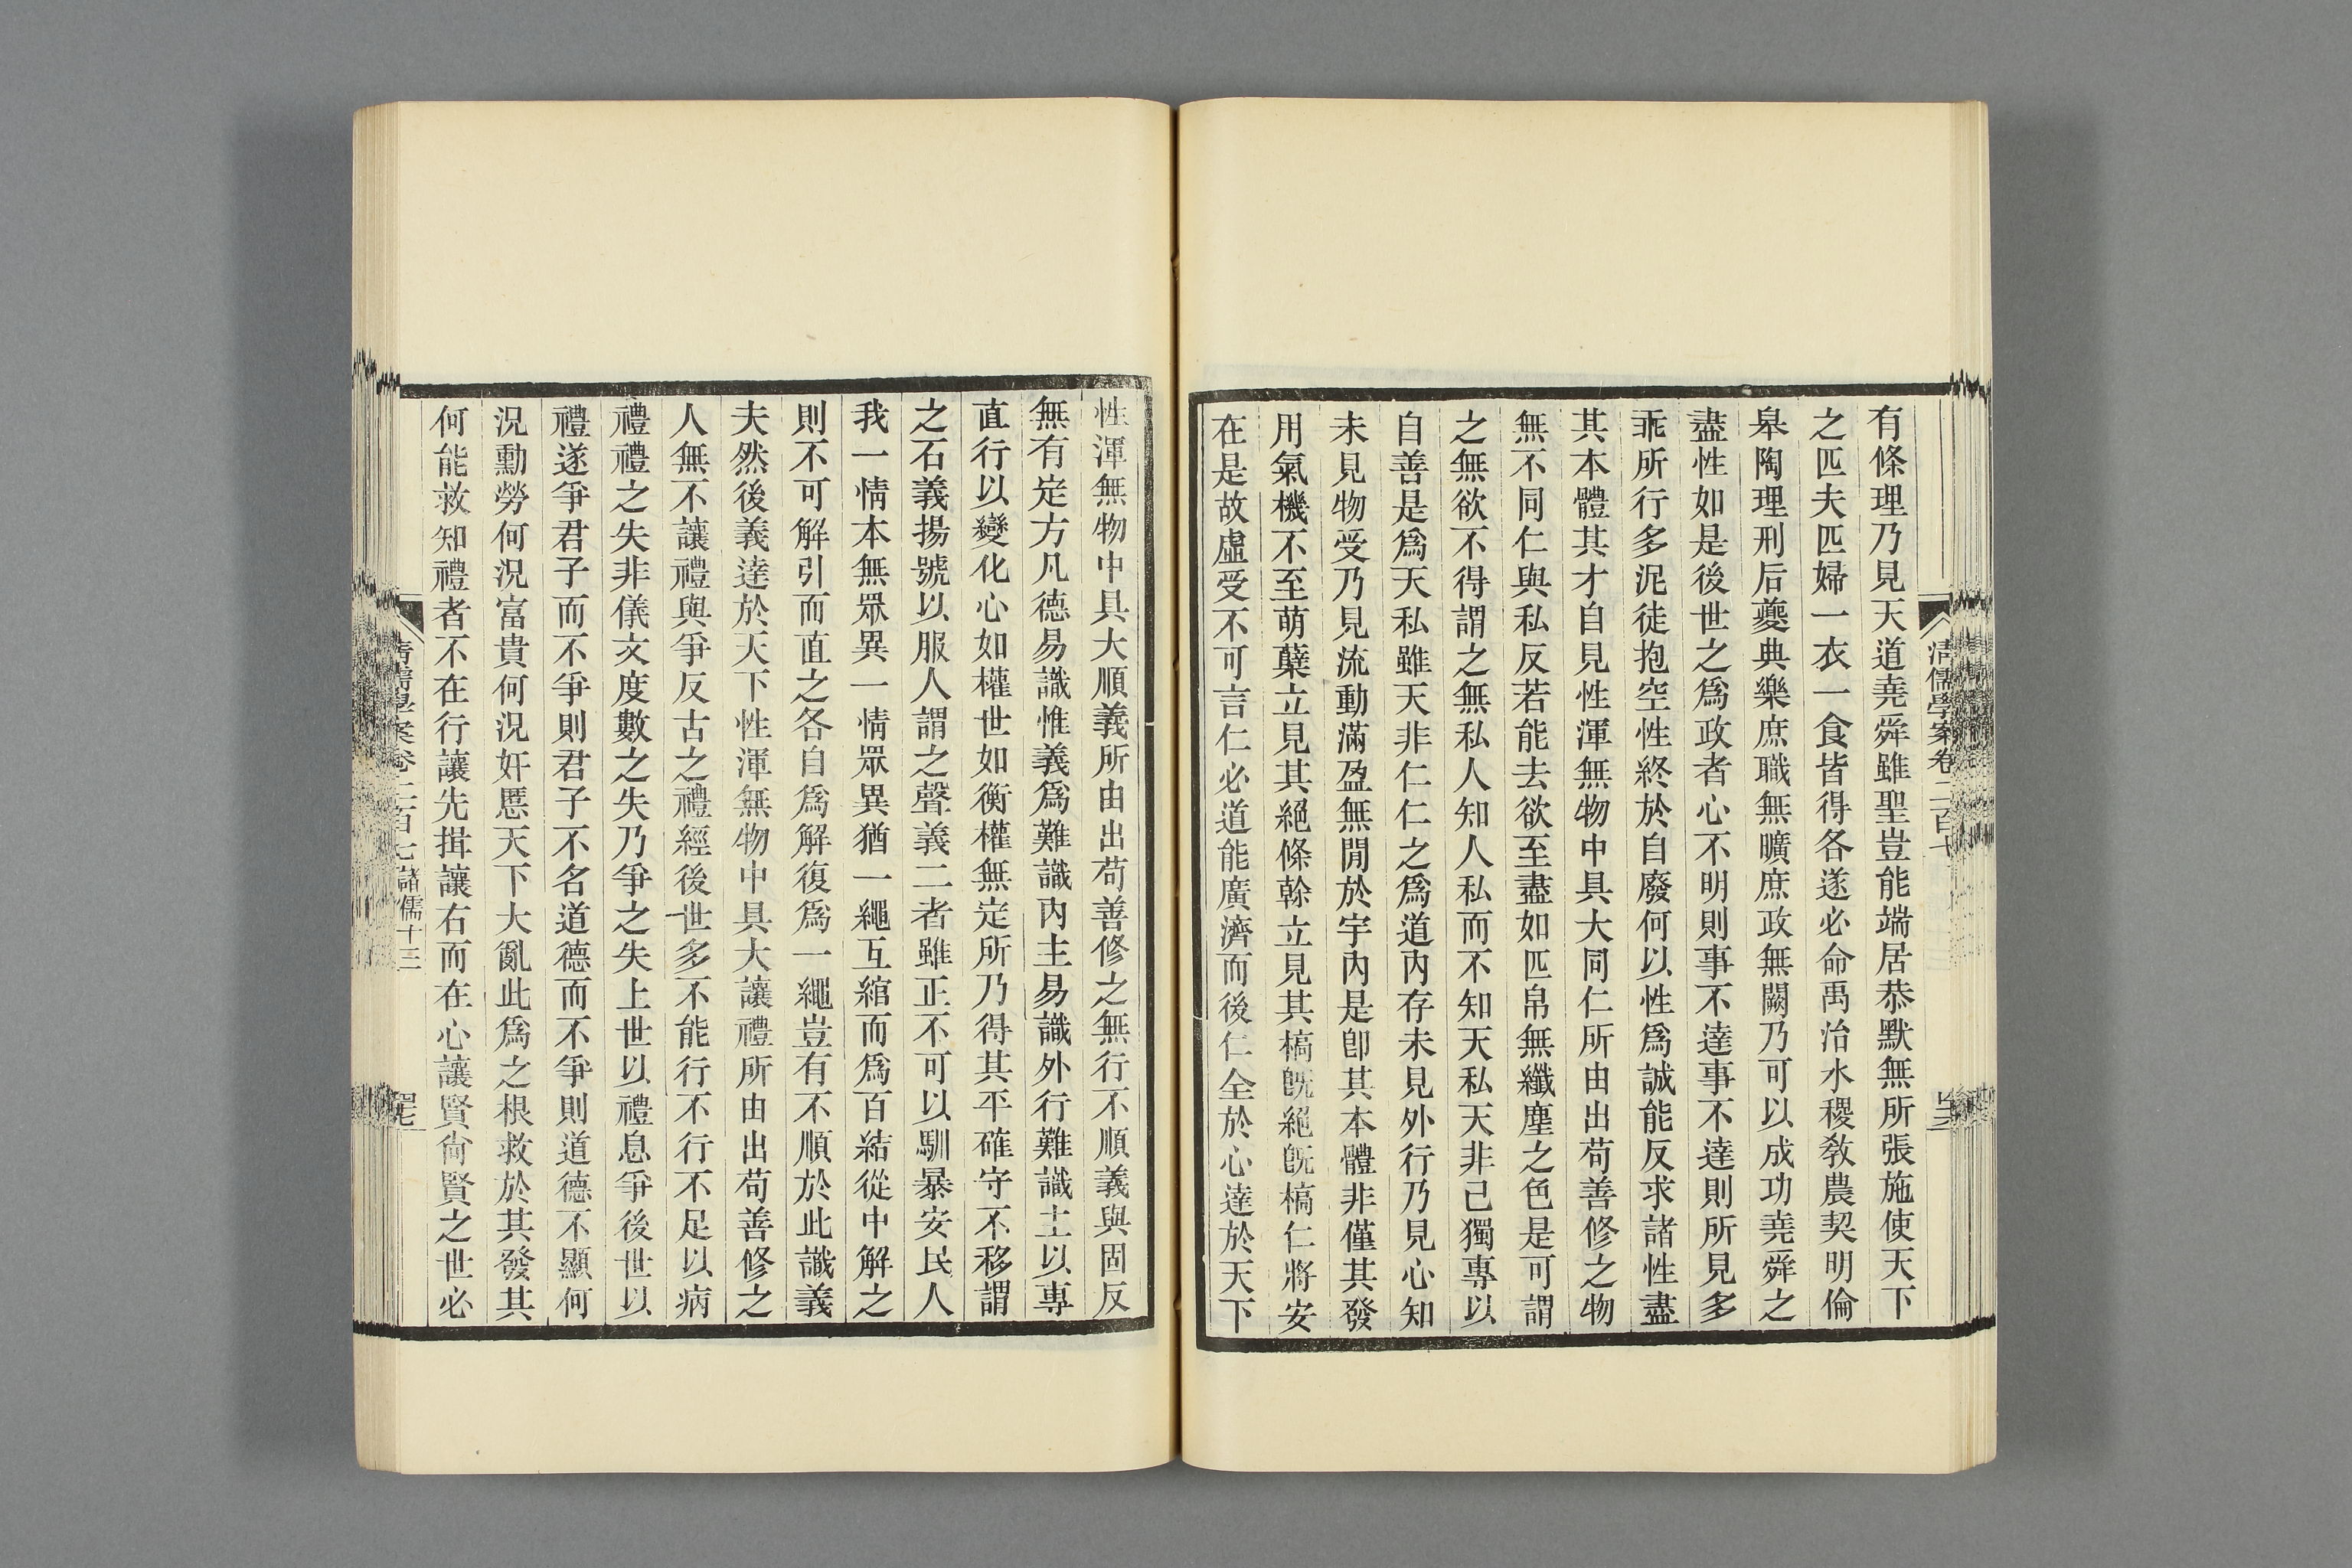 有條理乃見天道堯舜雖聖豈能端居恭默無所張施使天下
之匹夫匹婦一衣一食皆得各遂必命禹治水稷敎農契明倫
皋陶理刑后夔典樂庶職無曠庶政無闕乃可以成功堯舜之
盡性如是後世之爲政者心不明則事不達事不達則所見多
乖所行多泥徒抱空性終於自廢何以性爲誠能反求諸性盡
其本體其才自見性渾無物中具大同仁所由出苟善修之物
無不同仁與私反若能去欲至盡如匹帛無纖塵之色是可謂
之無欲不得謂之無私人知人私而不知天私天非己獨專以
自善是爲天私雖天非仁仁之爲道內存未見外行乃見心知
未見物受乃見流動滿盈無閒於宇內是卽其本體非僅其發
用氣機不至萌蘗立見其絕條榦立見其槁旣絕旣槁仁將安
在是故虛受不可言仁必道能廣濟而後仁全於心達於天下
清儒學案卷二百七
性渾無物中具大順義所由出苟善修之無行不順義與固反
無有定方凡德易識惟義爲難識內主易識外行難識士以專
直行以變化心如權世如衡權無定所乃得其平確守不移謂
之石義揚號以服人謂之聲義二者雖正不可以馴暴安民人
我一情本無眾異一情眾異猶一繩互綰而爲百結從中解之
則不可解引而直之各自爲解復爲一繩豈有不順於此識義
夫然後義達於天下性渾無物中具大讓禮所由出苟善修之
人無不讓禮與爭反古之禮經後世多不能行不行不足以病
禮禮之失非儀文度數之失乃爭之失上世以禮息爭後世以
禮遂爭君子而不爭則君子不名道德而不爭則道德不顯何
況勳勞何況富貴何況奸慝天下大亂此爲之根救於其發其
何能救知禮者不在行讓先揖讓右而在心讓賢尙賢之世必
清儒學案卷二百七 諸儒十三